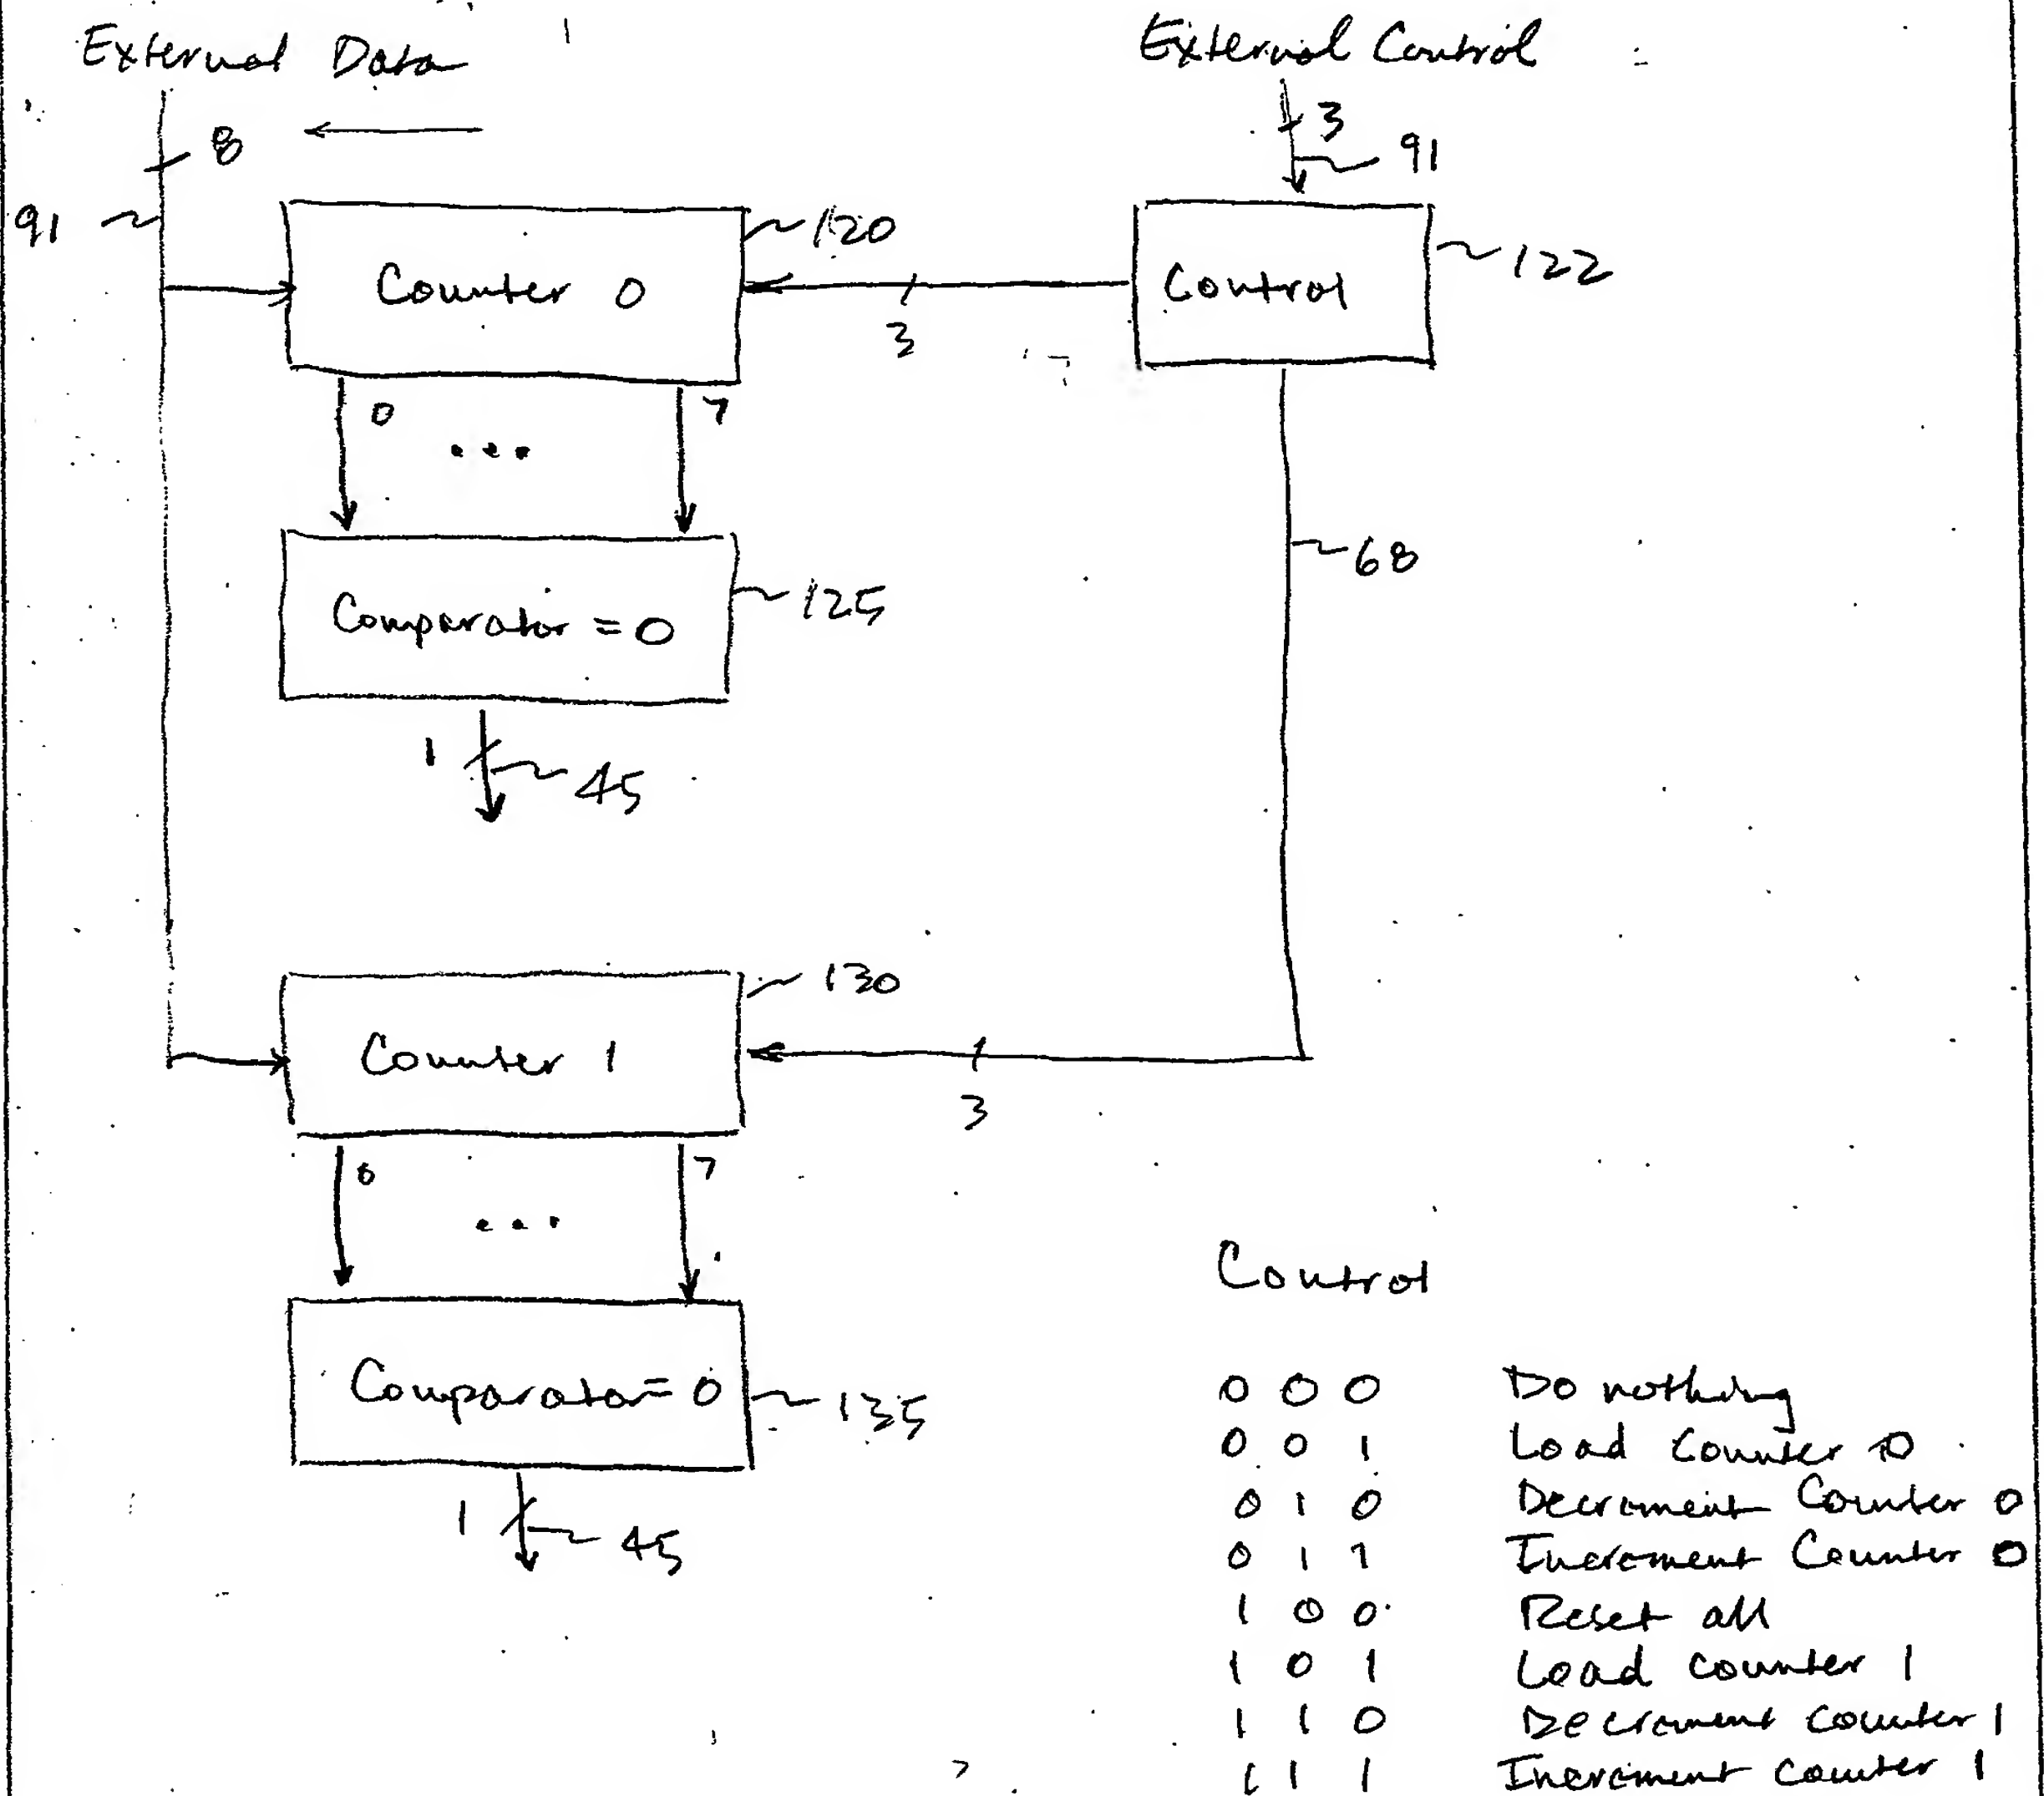 External Data
External Control
8
3
91
91
120
122
Counter 0
Control
3
0
7
...
68
Comparator = 0
125
1
45
130
Counter 1
3
0
7
...
Control
Comparator = 0
135
0 0 0 Do nothing
0 0 1 Load Counter 0
0 1 0 Decrement Counter 0
0 1 1 Increment Counter 0
1 0 0 Reset all
1 0 1 Load counter 1
1 1 0 Decrement counter 1
1 1 1 Increment counter 1
1
45